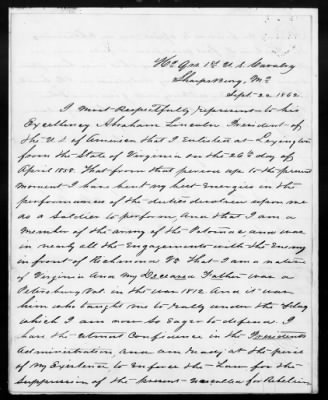 Hd Qrs 1st U.S. Cavalry
Sharpsburg, Md
Sept. 22 1862
I most Respectfully represent to his
Excellency Abraham Lincoln President of
the U.S. of American that I Enlisted at Lexington
from the State of Virginia on the 26th day of
April 1858. That from that period up to the present
moment I have bent my best Energies in the
performances of the duties devolved upon me
as a Soldier to perform, And that I am a
member of the army of the Potomac, and was
in nearly all the Engagements with the Enemy
in front of Richmond Va That I am a native
of Virginia And My Father was a
Petersburg Vol. in the War 1812. And it was
him who taught me to rally under the Flag
which I am now So Eager to defend. I
have the utmost Confidence in the Presidents
Administration, and am ready at the peril
of my Existence to Enforce the Law for the
Suppression of the present Rebellion